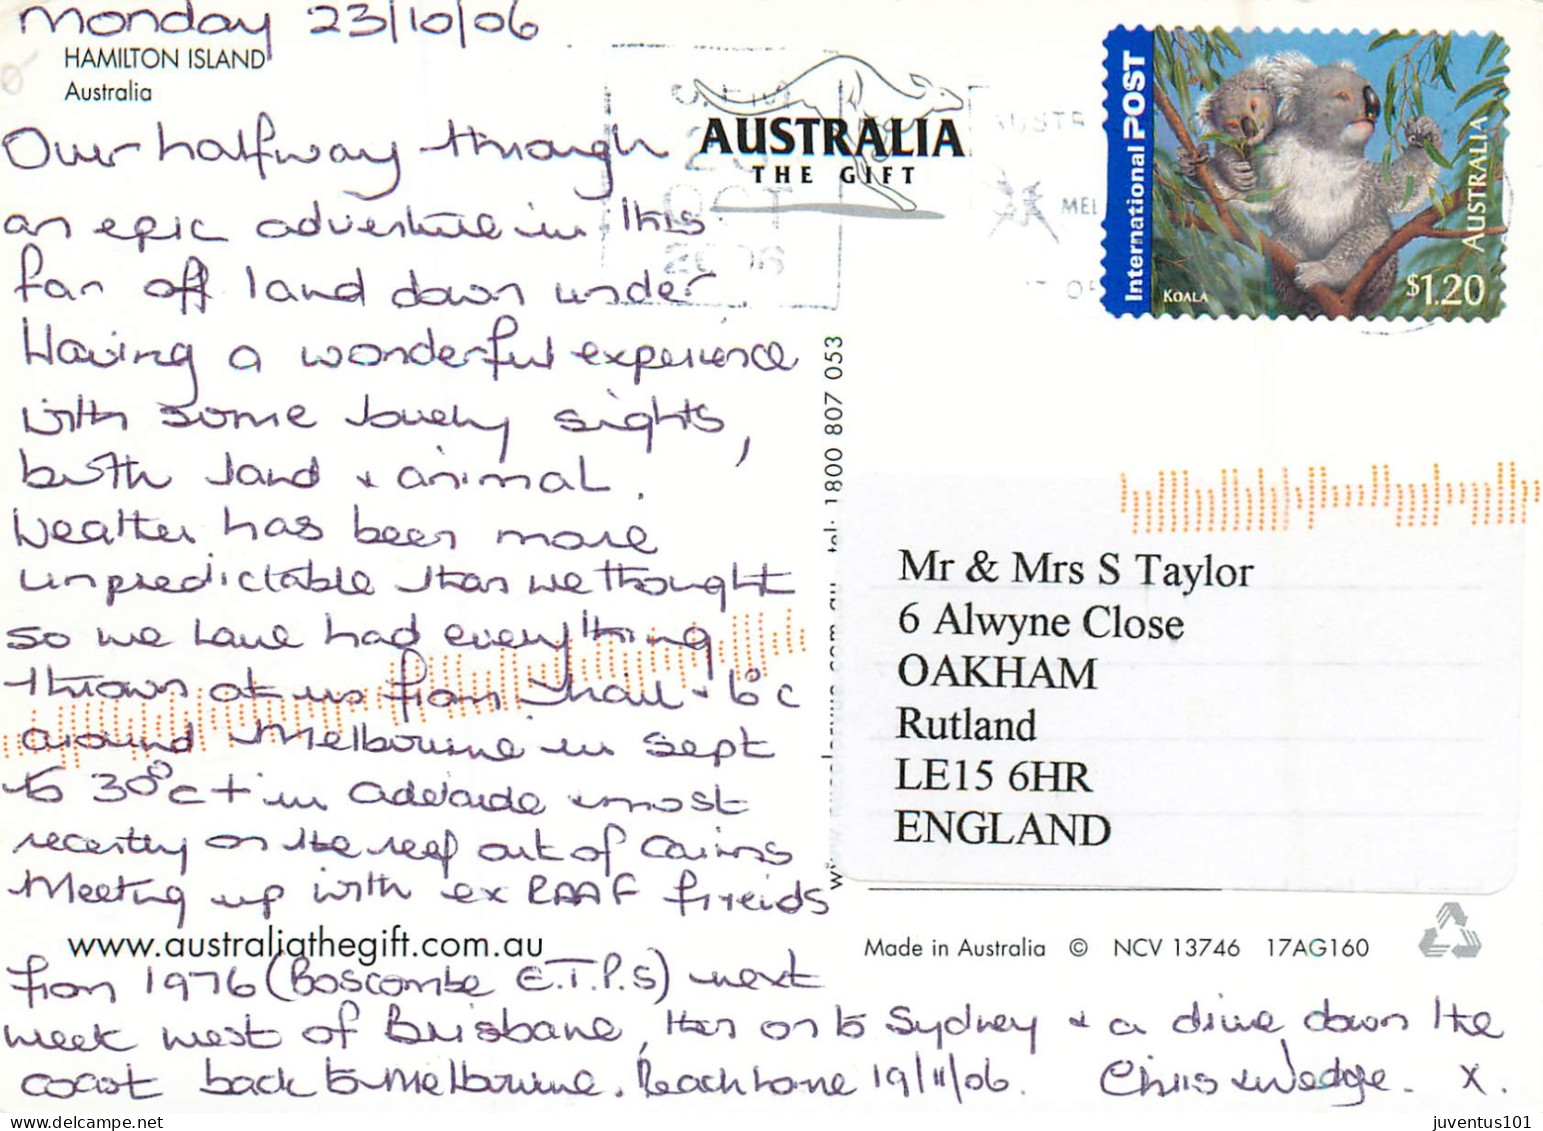 Monday 23/10/06
HAMILTON ISLAND
Australia
Our halfway through
an epic adventure in this
far off land down under.
Having a wonderful experience
with some lovely sights,
both land & animal.
Weather has been more
unpredictable than we thought
so we have had everything
thrown at us from hail & 6°C
around Melbourne in Sept
to 30°C + in Adelaide & most
recently on the reef out of Cairns
Meeting up with ex RAAF frieids
www.australiathegift.com.au
from 1976 (Boscombe E.T.P.S) next
week west of Brisbane, then on to Sydney & a drive down the
coast back to Melbourne. Reach home 19/11/06. Chris & Wedge. X.
AUSTRALIA
THE GIFT
OCT
2006
AUSTR
MEL
International POST
KOALA
AUSTRALIA
$1.20
tel: 1800 807 053
Mr & Mrs S Taylor
6 Alwyne Close
OAKHAM
Rutland
LE15 6HR
ENGLAND
Made in Australia © NCV 13746 17AG160
juventus101